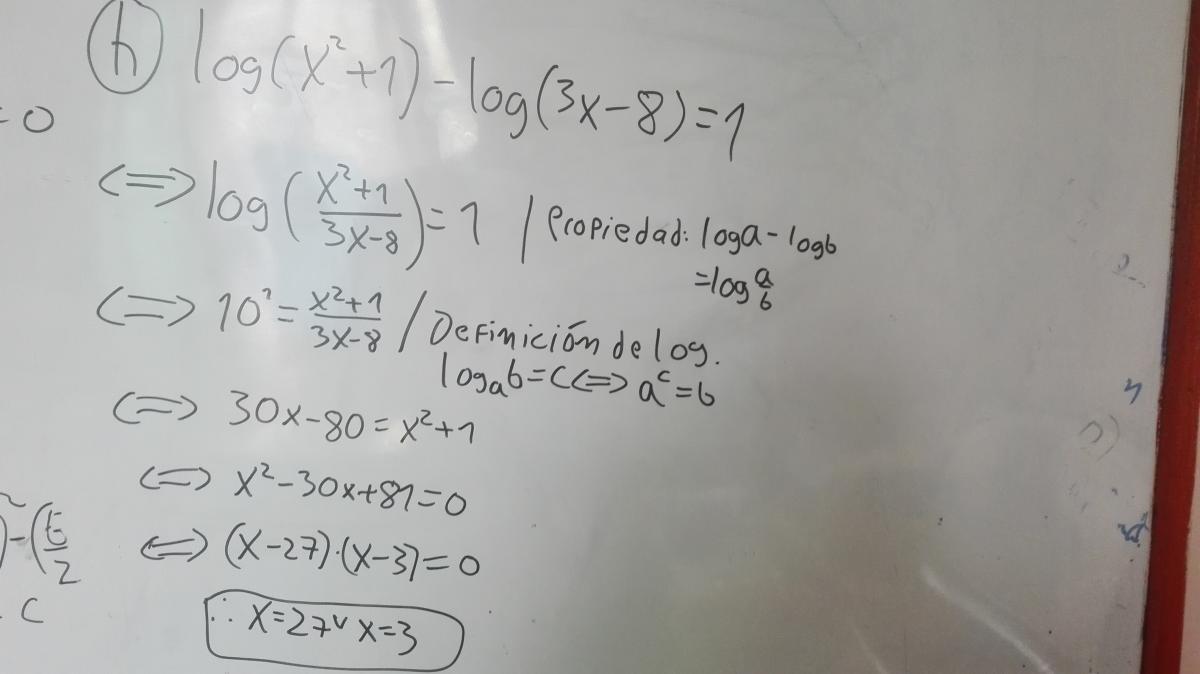 h log(x²+1)-log(3x-8)=1
= 0
<=> log((x²+1)/(3x-8))=1 / Propiedad: loga-logb
=log a/b
<=> 10¹=(x²+1)/(3x-8) / Definición de log.
logₐb=c<=> aᶜ=b
<=> 30x-80=x²+1
<=> x²-30x+81=0
<=> (x-27)·(x-3)=0
∴ x=27 ∨ x=3